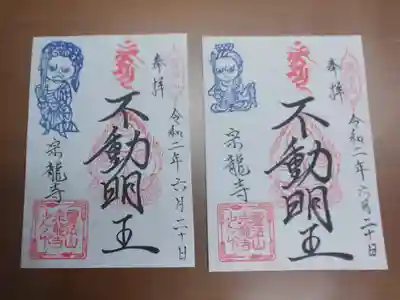 奉拝
令和二年六月二十日
不動明王
宗龍寺
奉拝
令和二年六月二十日
不動明王
宗龍寺